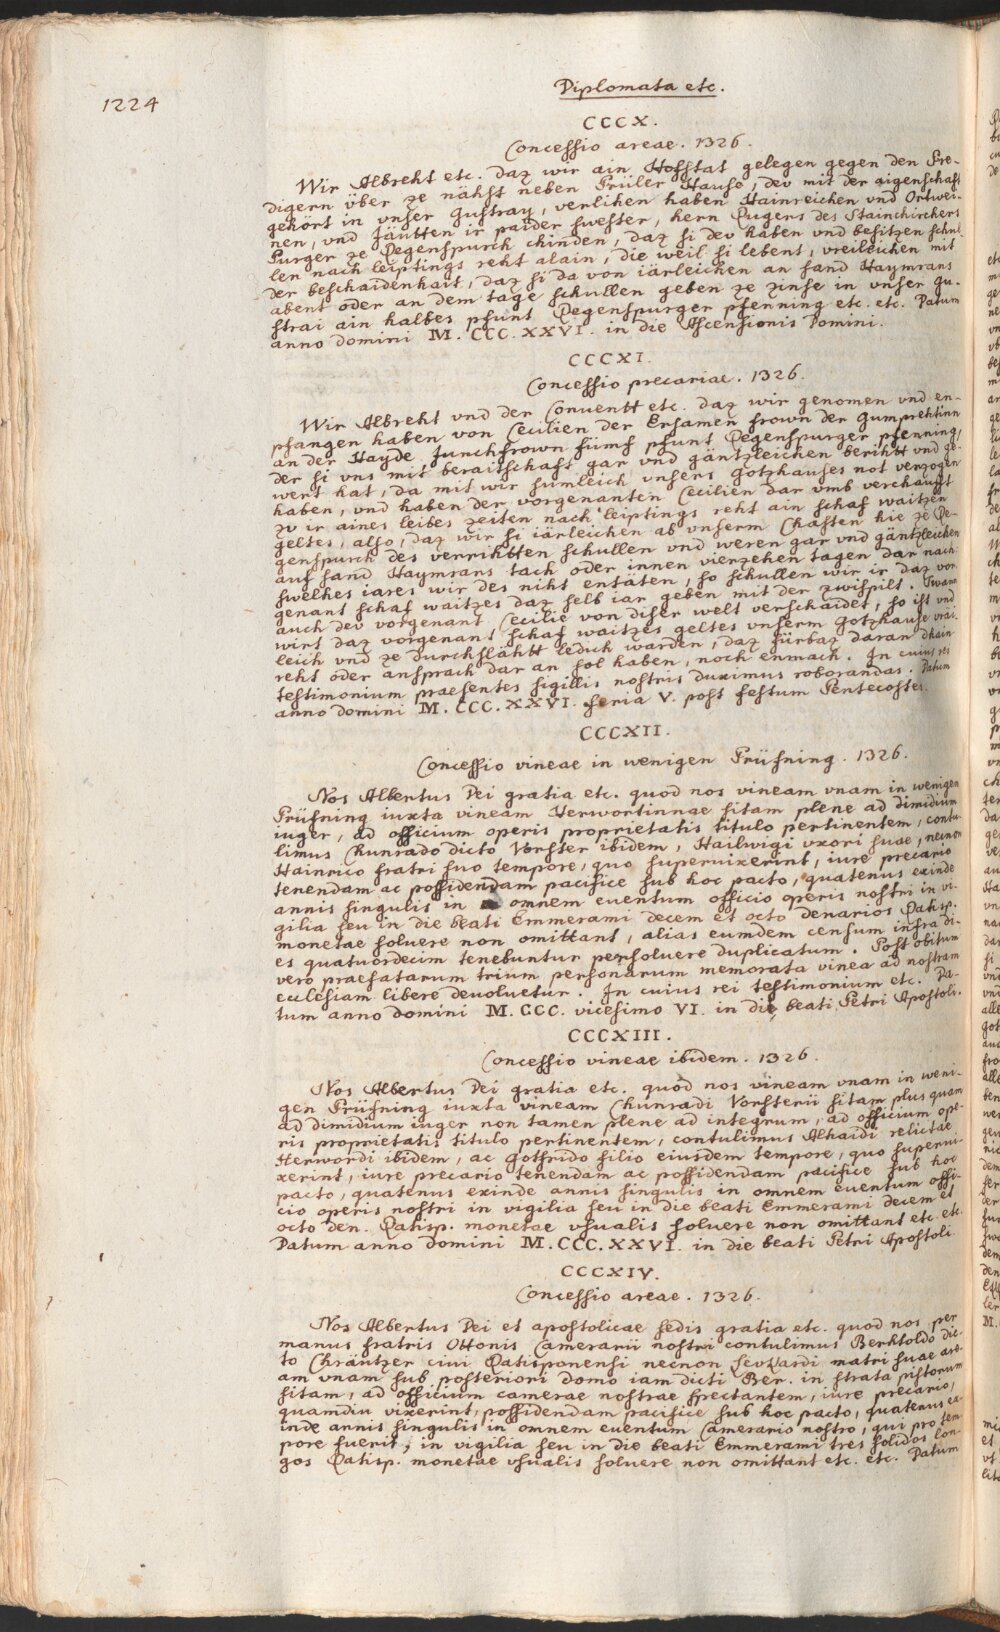 1224
Diplomata etc.
CCCX.
Concessio areae. 1326.
Wir Albreht etc. daz wir ain Hofstat gelegen gegen den Pre-
digern über ze nähst neben Prüler Hause, dev mit der aigenschaft
gehört in vnser Gustray, verlihen haben Hainreichen vnd Ortwei-
nen, vnd Jäutten ir paider swester, hern Rugers des Stainchirchers
Purger ze Regenspurch chinden, daz si dev haben vnd besitzen schul-
len nach leiptings reht alain, die weil si lebent, vreileichen mit
der beschaidenhait, daz si da von iärleichen an sand Haymrans
abent oder an dem tage schullen geben ze zinse in vnser Gu-
strai ain halbes pfunt Regenspurger pfenning etc. etc. Datum
anno domini M. CCC. XXVI. in die Ascensionis Domini.
CCCXI.
Concessio precariae. 1326.
Wir Albreht vnd der Conuentt etc. daz wir genomen vnd en-
pfangen haben von Cecilien der Ersamen frown der Gumprehtinn
an der Hayde Junchfrown fümf pfunt Regenspurger pfenning,
der si vns mit beraitschaft gar vnd gäntzleichen berihtt vnd ge-
wert hat, da mit wir sumleich vnsers Gotzhauses not verzogen
haben, vnd haben der vorgenanten Cecilien dar vmb verchaufft
zv ir aines leibes zeiten nach leiptings reht ain schaf waitzen
geltes, also, daz wir si iärleichen ab vnserm Chasten hie ze Re-
genspurch des verrihtten schullen vnd weren gar vnd gäntzleichen
auf sand Haymrans tach oder innen vierzehen tagen dar nach.
swelhes iares wir des niht entäten, so schullen wir ir daz vor
genant schaf waitzes daz selb iar geben mit der zwispilt. Swann
auch dev vorgenant Cecilie von diser welt verschaidet, so ist vnd
wirt daz vorgenant schaf waitzes geltes vnserm Gotzhause vräi-
leich vnd ze durchslähtt ledich warden, daz fürbaz daran dhain
reht oder ansprach dar an sol haben, noch enmach. In cuius rei
testimonium praesentes sigillis nostris duximus roborandas. Datum
anno domini M. CCC. XXVI. feria V. post festum Pentecostes.
CCCXII.
Concessio vineae in wenigen Prüfning. 1326.
Nos Albertus Dei gratia etc. quod nos vineam vnam in wenigen
Prüfning iuxta vineam Herwortinnae sitam plene ad dimidium
iuger, ad officium operis proprietatis titulo pertinentem, contu-
limus Chunrado dicto Vorster ibidem, Hailwigi vxori suae, necnon
Hainrico fratri suo tempore, quo superuixerint, iure precario
tenendam ac possidendam pacifice sub hoc pacto, quatenus exinde
annis singulis in omnem euentum officio operis nostri in vi-
gilia seu in die beati Emmerami decem et octo denarios Ratisp.
monetae soluere non omittant, alias eumdem censum infra di-
es quatuordecim tenebuntur persoluere duplicatum. Post obitum
vero praefatarum trium personarum memorata vinea ad nostram
ecclesiam libere deuoluetur. In cuius rei testimonium etc. Da-
tum anno domini M. CCC. vicesimo VI. in die beati Petri Apostoli.
CCCXIII.
Concessio vineae ibidem. 1326.
Nos Albertus Dei gratia etc. quod nos vineam vnam in weni-
gen Prüfning iuxta vineam Chunradi Vorsterii sitam plus quam
ad dimidium iuger non tamen plene ad integrum, ad officium ope-
ris proprietatis titulo pertinentem, contulimus Alhaidi relictae
Herwordi ibidem, ac Gotfrido filio eiusdem tempore, quo superui-
xerint, iure precario tenendam ac possidendam pacifice sub hoc
pacto, quatenus exinde annis singulis in omnem euentum offi-
cio operis nostri in vigilia seu in die beati Emmerami decem et
octo den. Ratisp. monetae vsualis soluere non omittant etc. etc.
Datum anno domini M. CCC. XXVI. in die beati Petri Apostoli.
CCCXIV.
Concessio areae. 1326.
Nos Albertus Dei et apostolicae sedis gratia etc. quod nos per
manus fratris Ottonis Camerarii nostri contulimus Berhtoldo dic-
to Chräntzer ciui Ratisponensi necnon matri suae are-
am vnam sub posteriori domo iam dicti Ber. in strata pistorum
sitam, ad officium camerae nostrae spectantem, iure precario,
quamdiu vixerint, possidendam pacifice sub hoc pacto, quatenus ex-
inde annis singulis in omnem euentum Camerario nostro, qui pro tem-
pore fuerit, in vigilia seu in die beati Emmerami tres solidos lon-
gos Ratisp. monetae vsualis soluere non omittant etc. etc. Datum